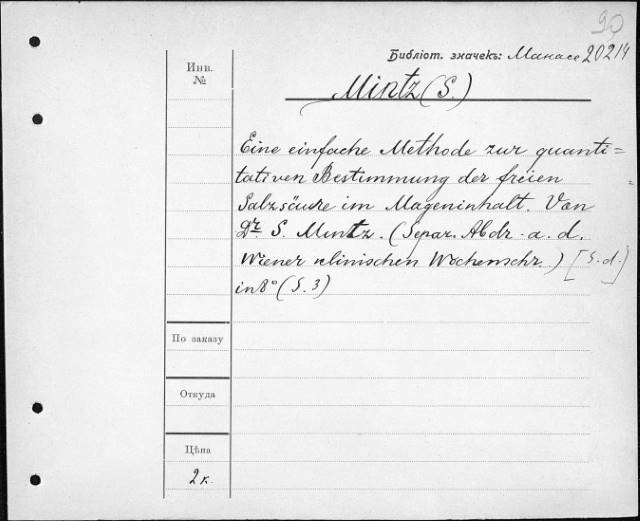 90
Библіот. значекъ: Манасе 20214
Инв.
№
Mintz (S.)
Eine einfache Methode zur quanti=
tativen Bestimmung der freien
Salzsäure im Mageninhalt. Von
Dr. S. Mintz. (Separ. Abdr. a. d.
Wiener klinischen Wochenschr.) [S. d.]
in 8° (S. 3)
По заказу
Откуда
Цѣна
2 к.